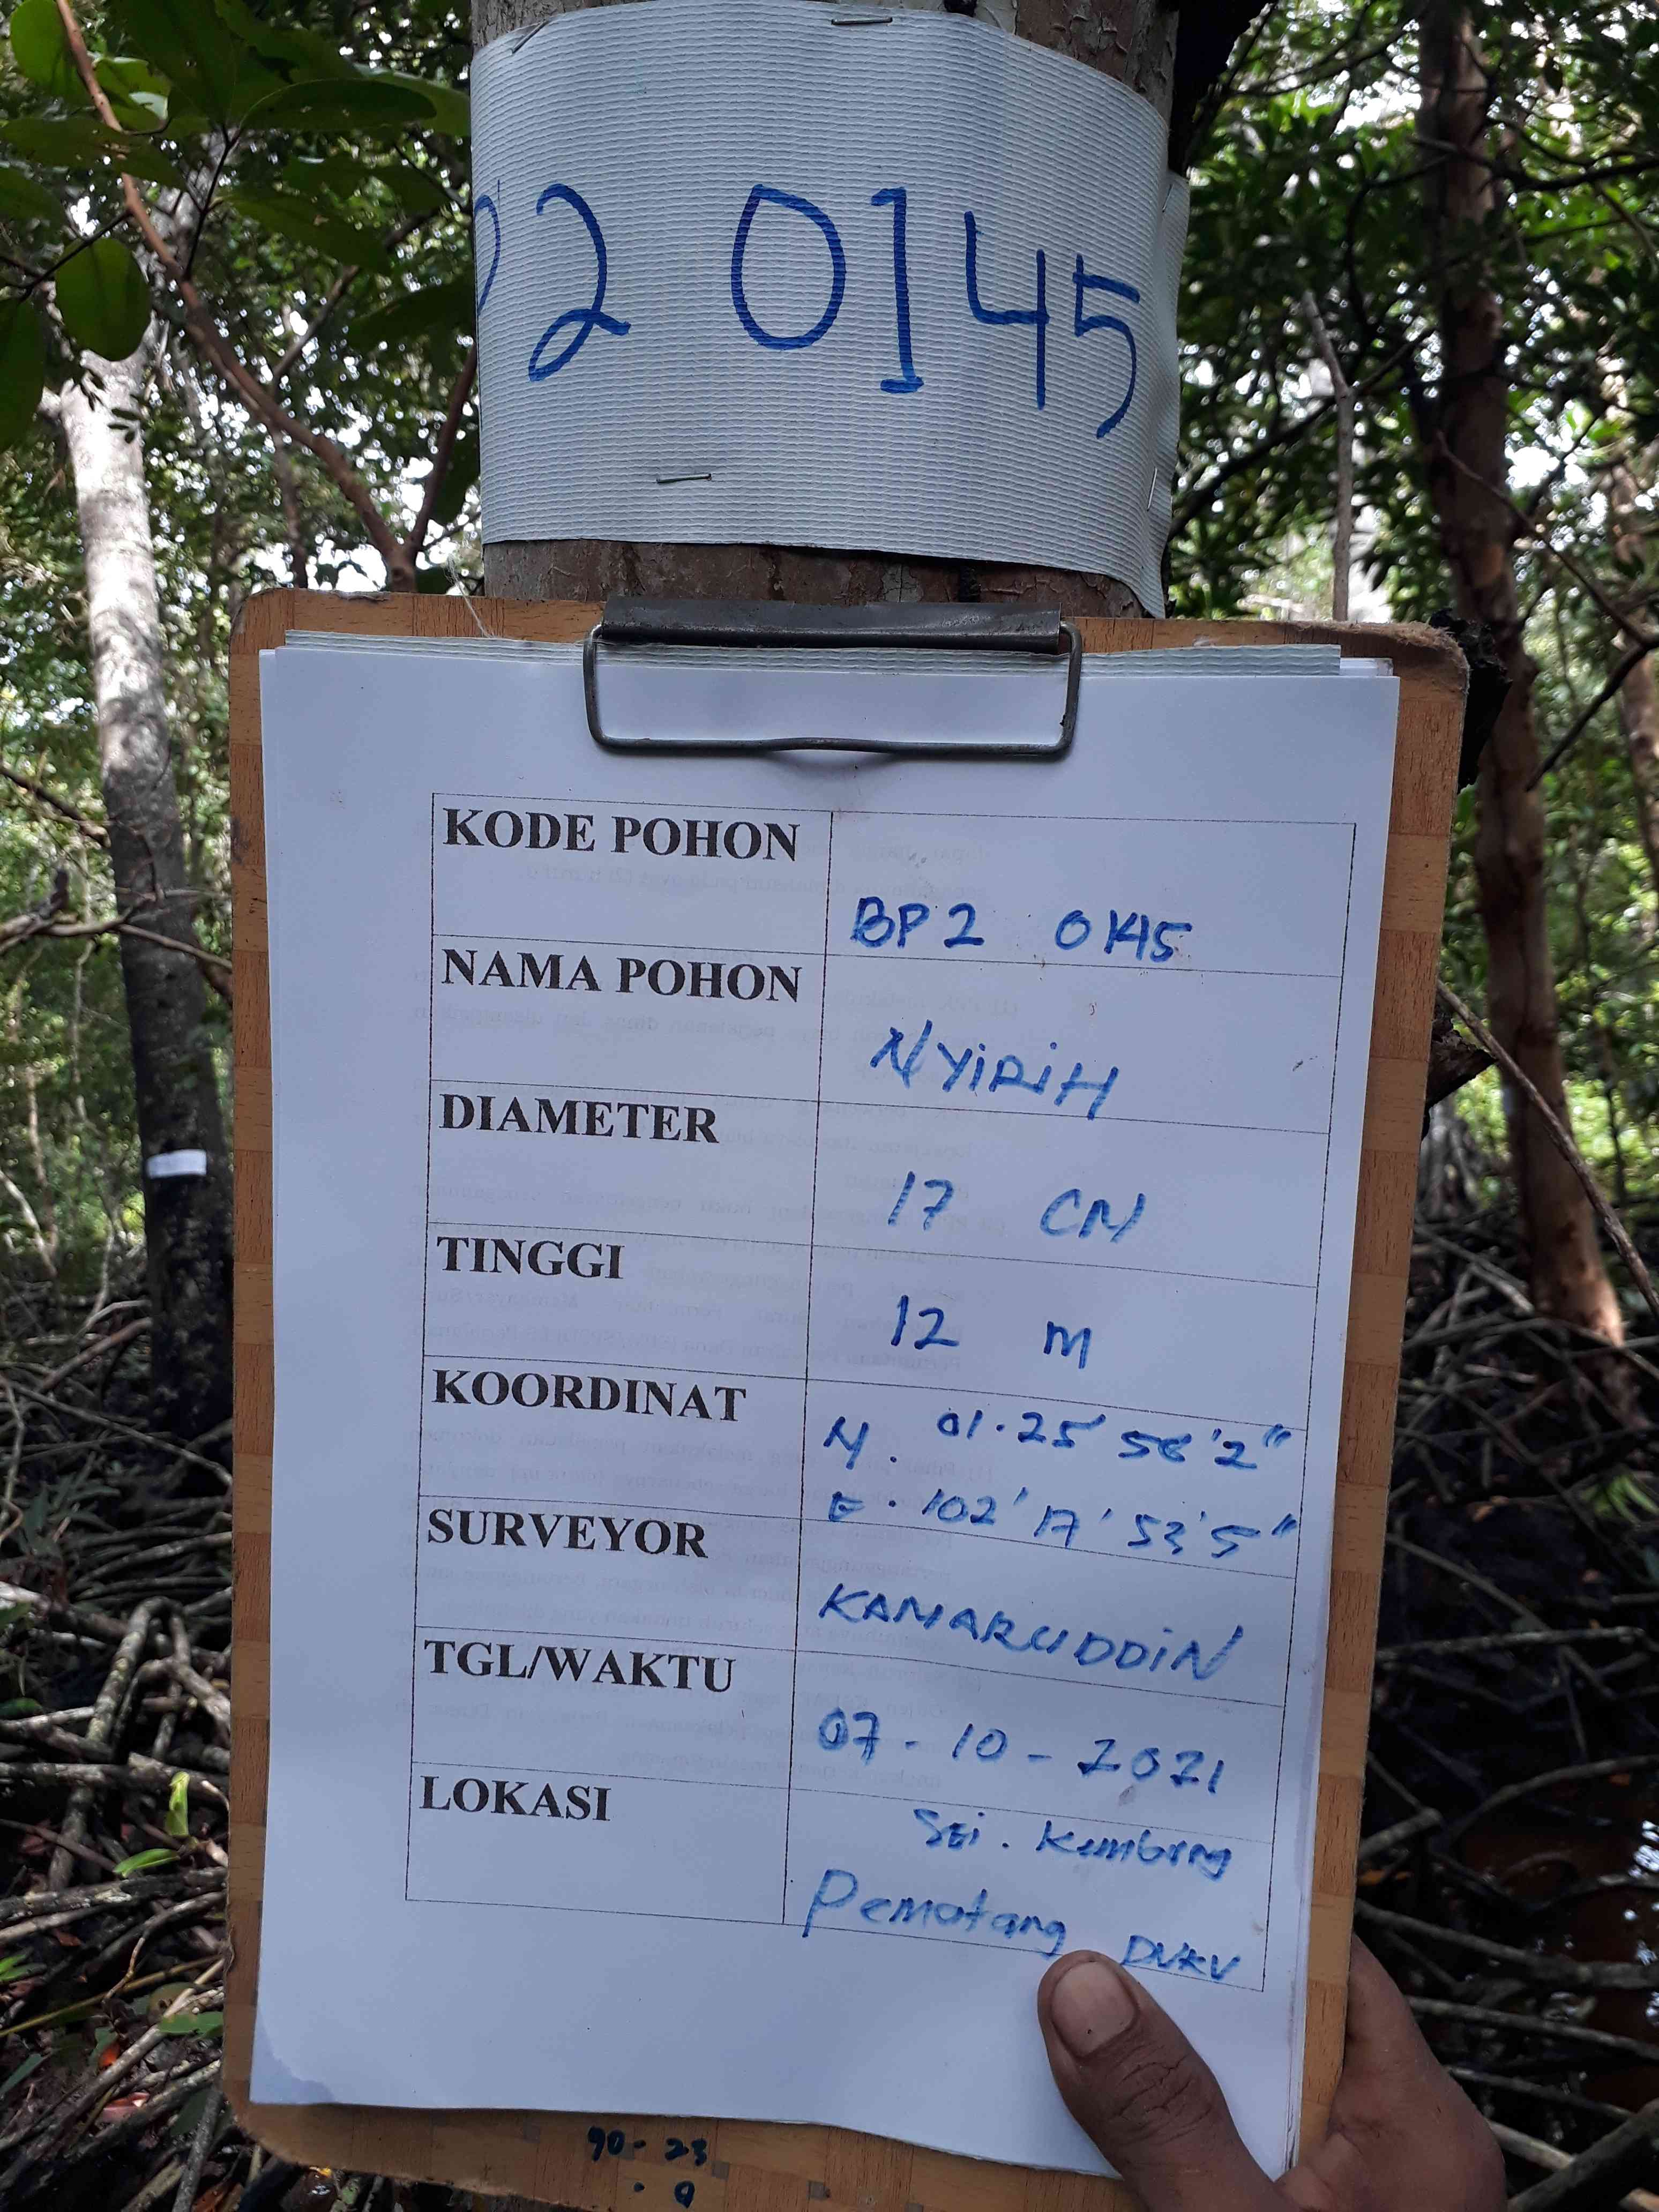 P2 0145
KODE POHON BP2 0145
NAMA POHON NYIRIH
DIAMETER 17 CM
TINGGI 12 m
KOORDINAT N. 01.25 56'2"
E. 102' 17' 53'5"
SURVEYOR KAMARUDDIN
TGL/WAKTU 07-10-2021
LOKASI SEi. Kembung
Pematang DUKU
90-23